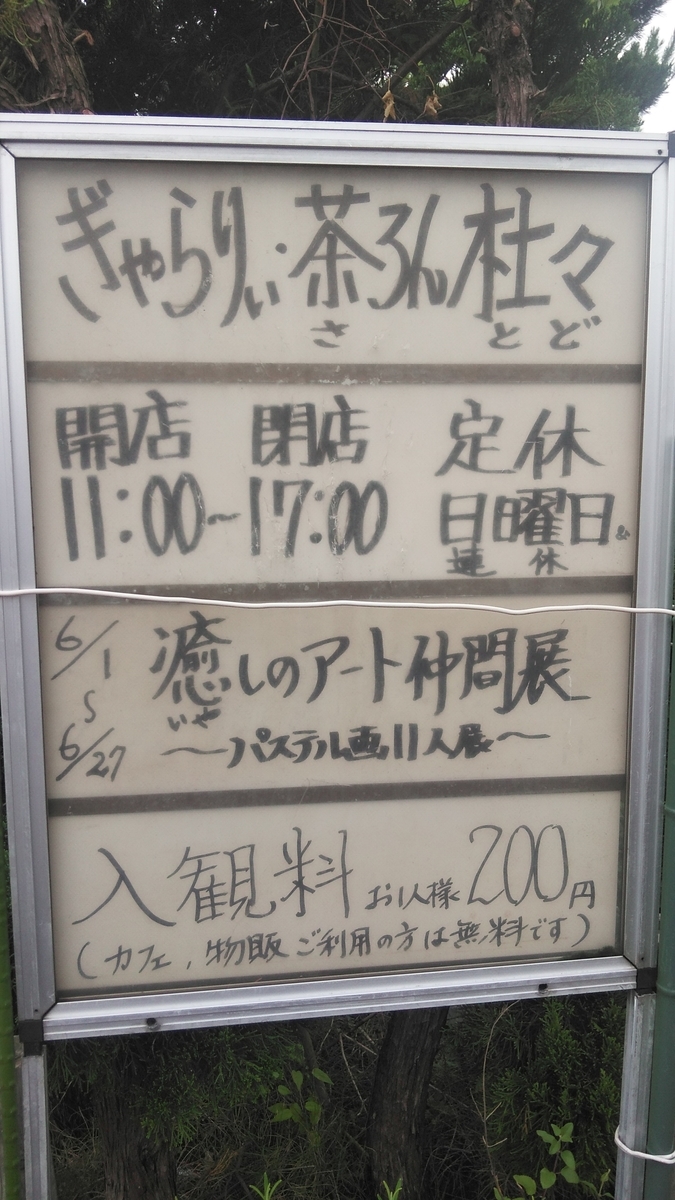 ぎゃらりぃ・茶ろん杜々
さ とど
開店 閉店 定休
11:00~17:00 日曜日&
連休
6/1
〜
6/27
癒しのアート仲間展
いや
〜パステル画11人展〜
入観料 お1人様200円
(カフェ,物販ご利用の方は無料です)